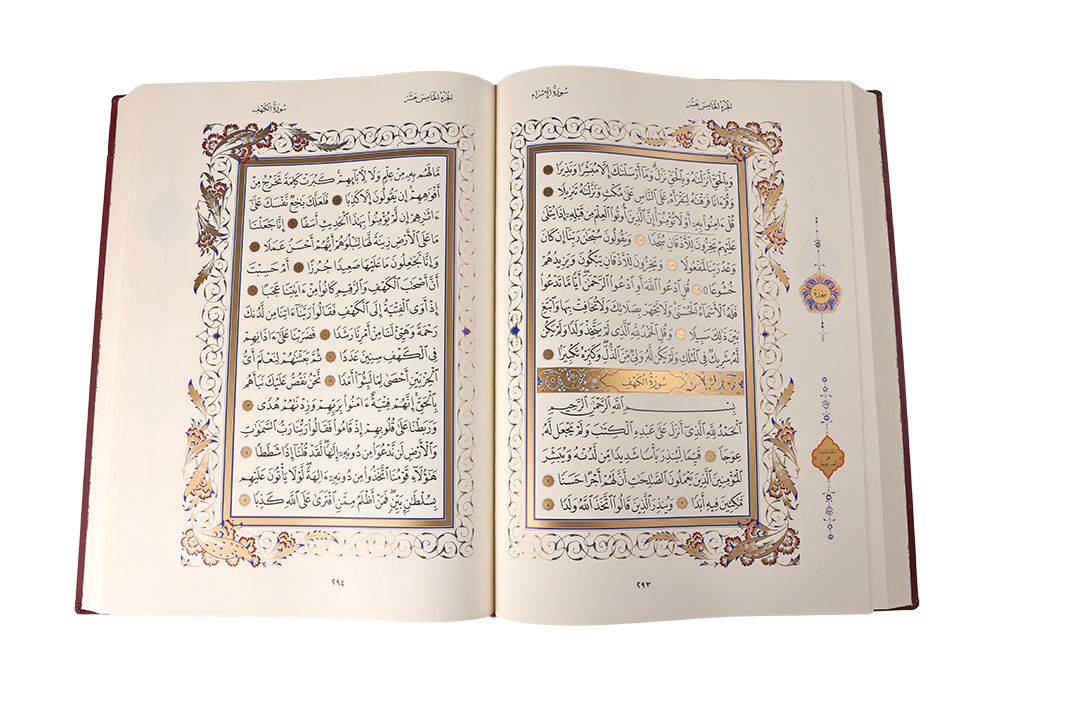 سُورَةُ الإِسْرَاءِ
الجُزْءُ الخَامِسَ عَشَرَ
وَبِٱلْحَقِّ أَنزَلْنَٰهُ وَبِٱلْحَقِّ نَزَلَ ۗ وَمَآ أَرْسَلْنَٰكَ إِلَّا مُبَشِّرًا وَنَذِيرًا ١٠٥
وَقُرْءَانًا فَرَقْنَٰهُ لِتَقْرَأَهُۥ عَلَى ٱلنَّاسِ عَلَىٰ مُكْثٍ وَنَزَّلْنَٰهُ تَنزِيلًا ١٠٦
قُلْ ءَامِنُوا۟ بِهِۦٓ أَوْ لَا تُؤْمِنُوٓا۟ ۚ إِنَّ ٱلَّذِينَ أُوتُوا۟ ٱلْعِلْمَ مِن قَبْلِهِۦٓ إِذَا يُتْلَىٰ
عَلَيْهِمْ يَخِرُّونَ لِلْأَذْقَانِ سُجَّدًا ١٠٧ وَيَقُولُونَ سُبْحَٰنَ رَبِّنَآ إِن كَانَ
وَعْدُ رَبِّنَا لَمَفْعُولًا ١٠٨ وَيَخِرُّونَ لِلْأَذْقَانِ يَبْكُونَ وَيَزِيدُهُمْ
خُشُوعًا ۩ ١٠٩ قُلِ ٱدْعُوا۟ ٱللَّهَ أَوِ ٱدْعُوا۟ ٱلرَّحْمَٰنَ ۖ أَيًّا مَّا تَدْعُوا۟
فَلَهُ ٱلْأَسْمَآءُ ٱلْحُسْنَىٰ ۚ وَلَا تَجْهَرْ بِصَلَاتِكَ وَلَا تُخَافِتْ بِهَا وَٱبْتَغِ
بَيْنَ ذَٰلِكَ سَبِيلًا ١١٠ وَقُلِ ٱلْحَمْدُ لِلَّهِ ٱلَّذِى لَمْ يَتَّخِذْ وَلَدًا وَلَمْ يَكُن
لَّهُۥ شَرِيكٌ فِى ٱلْمُلْكِ وَلَمْ يَكُن لَّهُۥ وَلِىٌّ مِّنَ ٱلذُّلِّ ۖ وَكَبِّرْهُ تَكْبِيرًۢا ١١١
سُورَةُ الكَهْفِ
بِسْمِ ٱللَّهِ ٱلرَّحْمَٰنِ ٱلرَّحِيمِ
ٱلْحَمْدُ لِلَّهِ ٱلَّذِىٓ أَنزَلَ عَلَىٰ عَبْدِهِ ٱلْكِتَٰبَ وَلَمْ يَجْعَل لَّهُۥ
عِوَجَا ۜ ١ قَيِّمًا لِّيُنذِرَ بَأْسًا شَدِيدًا مِّن لَّدُنْهُ وَيُبَشِّرَ
ٱلْمُؤْمِنِينَ ٱلَّذِينَ يَعْمَلُونَ ٱلصَّٰلِحَٰتِ أَنَّ لَهُمْ أَجْرًا حَسَنًا ٢
مَّٰكِثِينَ فِيهِ أَبَدًا ٣ وَيُنذِرَ ٱلَّذِينَ قَالُوا۟ ٱتَّخَذَ ٱللَّهُ وَلَدًا ٤
سَجْدَة
٢٩٣
سُورَةُ الكَهْفِ
الجُزْءُ الخَامِسَ عَشَرَ
مَّا لَهُم بِهِۦ مِنْ عِلْمٍ وَلَا لِـَٔابَآئِهِمْ ۚ كَبُرَتْ كَلِمَةً تَخْرُجُ مِنْ
أَفْوَٰهِهِمْ ۚ إِن يَقُولُونَ إِلَّا كَذِبًا ٥ فَلَعَلَّكَ بَٰخِعٌ نَّفْسَكَ عَلَىٰٓ
ءَاثَٰرِهِمْ إِن لَّمْ يُؤْمِنُوا۟ بِهَٰذَا ٱلْحَدِيثِ أَسَفًا ٦ إِنَّا جَعَلْنَا
مَا عَلَى ٱلْأَرْضِ زِينَةً لَّهَا لِنَبْلُوَهُمْ أَيُّهُمْ أَحْسَنُ عَمَلًا ٧
وَإِنَّا لَجَٰعِلُونَ مَا عَلَيْهَا صَعِيدًا جُرُزًا ٨ أَمْ حَسِبْتَ
أَنَّ أَصْحَٰبَ ٱلْكَهْفِ وَٱلرَّقِيمِ كَانُوا۟ مِنْ ءَايَٰتِنَا عَجَبًا ٩
إِذْ أَوَى ٱلْفِتْيَةُ إِلَى ٱلْكَهْفِ فَقَالُوا۟ رَبَّنَآ ءَاتِنَا مِن لَّدُنكَ
رَحْمَةً وَهَيِّئْ لَنَا مِنْ أَمْرِنَا رَشَدًا ١٠ فَضَرَبْنَا عَلَىٰٓ ءَاذَانِهِمْ
فِى ٱلْكَهْفِ سِنِينَ عَدَدًا ١١ ثُمَّ بَعَثْنَٰهُمْ لِنَعْلَمَ أَىُّ
ٱلْحِزْبَيْنِ أَحْصَىٰ لِمَا لَبِثُوٓا۟ أَمَدًا ١٢ نَّحْنُ نَقُصُّ عَلَيْكَ نَبَأَهُم
بِٱلْحَقِّ ۚ إِنَّهُمْ فِتْيَةٌ ءَامَنُوا۟ بِرَبِّهِمْ وَزِدْنَٰهُمْ هُدًى ١٣
وَرَبَطْنَا عَلَىٰ قُلُوبِهِمْ إِذْ قَامُوا۟ فَقَالُوا۟ رَبُّنَا رَبُّ ٱلسَّمَٰوَٰتِ
وَٱلْأَرْضِ لَن نَّدْعُوَا۟ مِن دُونِهِۦٓ إِلَٰهًا ۖ لَّقَدْ قُلْنَآ إِذًا شَطَطًا ١٤
هَٰٓؤُلَآءِ قَوْمُنَا ٱتَّخَذُوا۟ مِن دُونِهِۦٓ ءَالِهَةً ۖ لَّوْلَا يَأْتُونَ عَلَيْهِم
بِسُلْطَٰنٍۭ بَيِّنٍ ۖ فَمَنْ أَظْلَمُ مِمَّنِ ٱفْتَرَىٰ عَلَى ٱللَّهِ كَذِبًا ١٥
٢٩٤